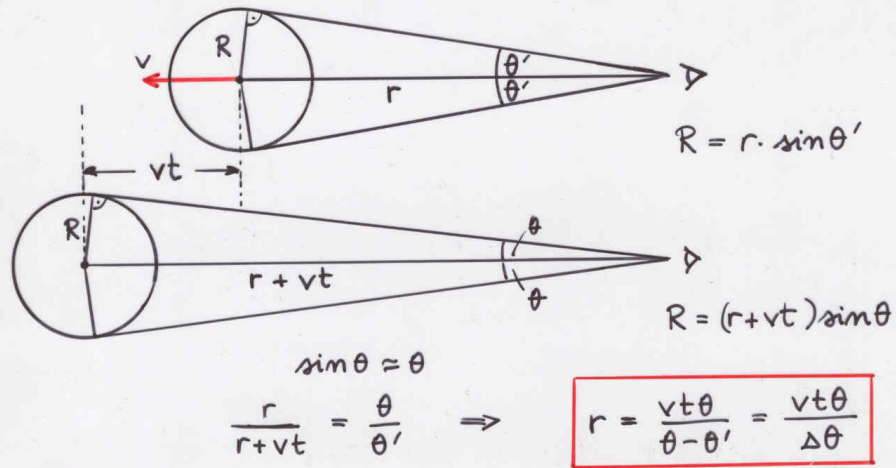 R
v
θ'
θ'
r
R = r · sin θ'
vt
R
θ
θ
r + vt
R = (r+vt) sin θ
sin θ ≃ θ
r/(r+vt) = θ/θ' ⇒ r = vtθ/(θ-θ') = vtθ/Δθ